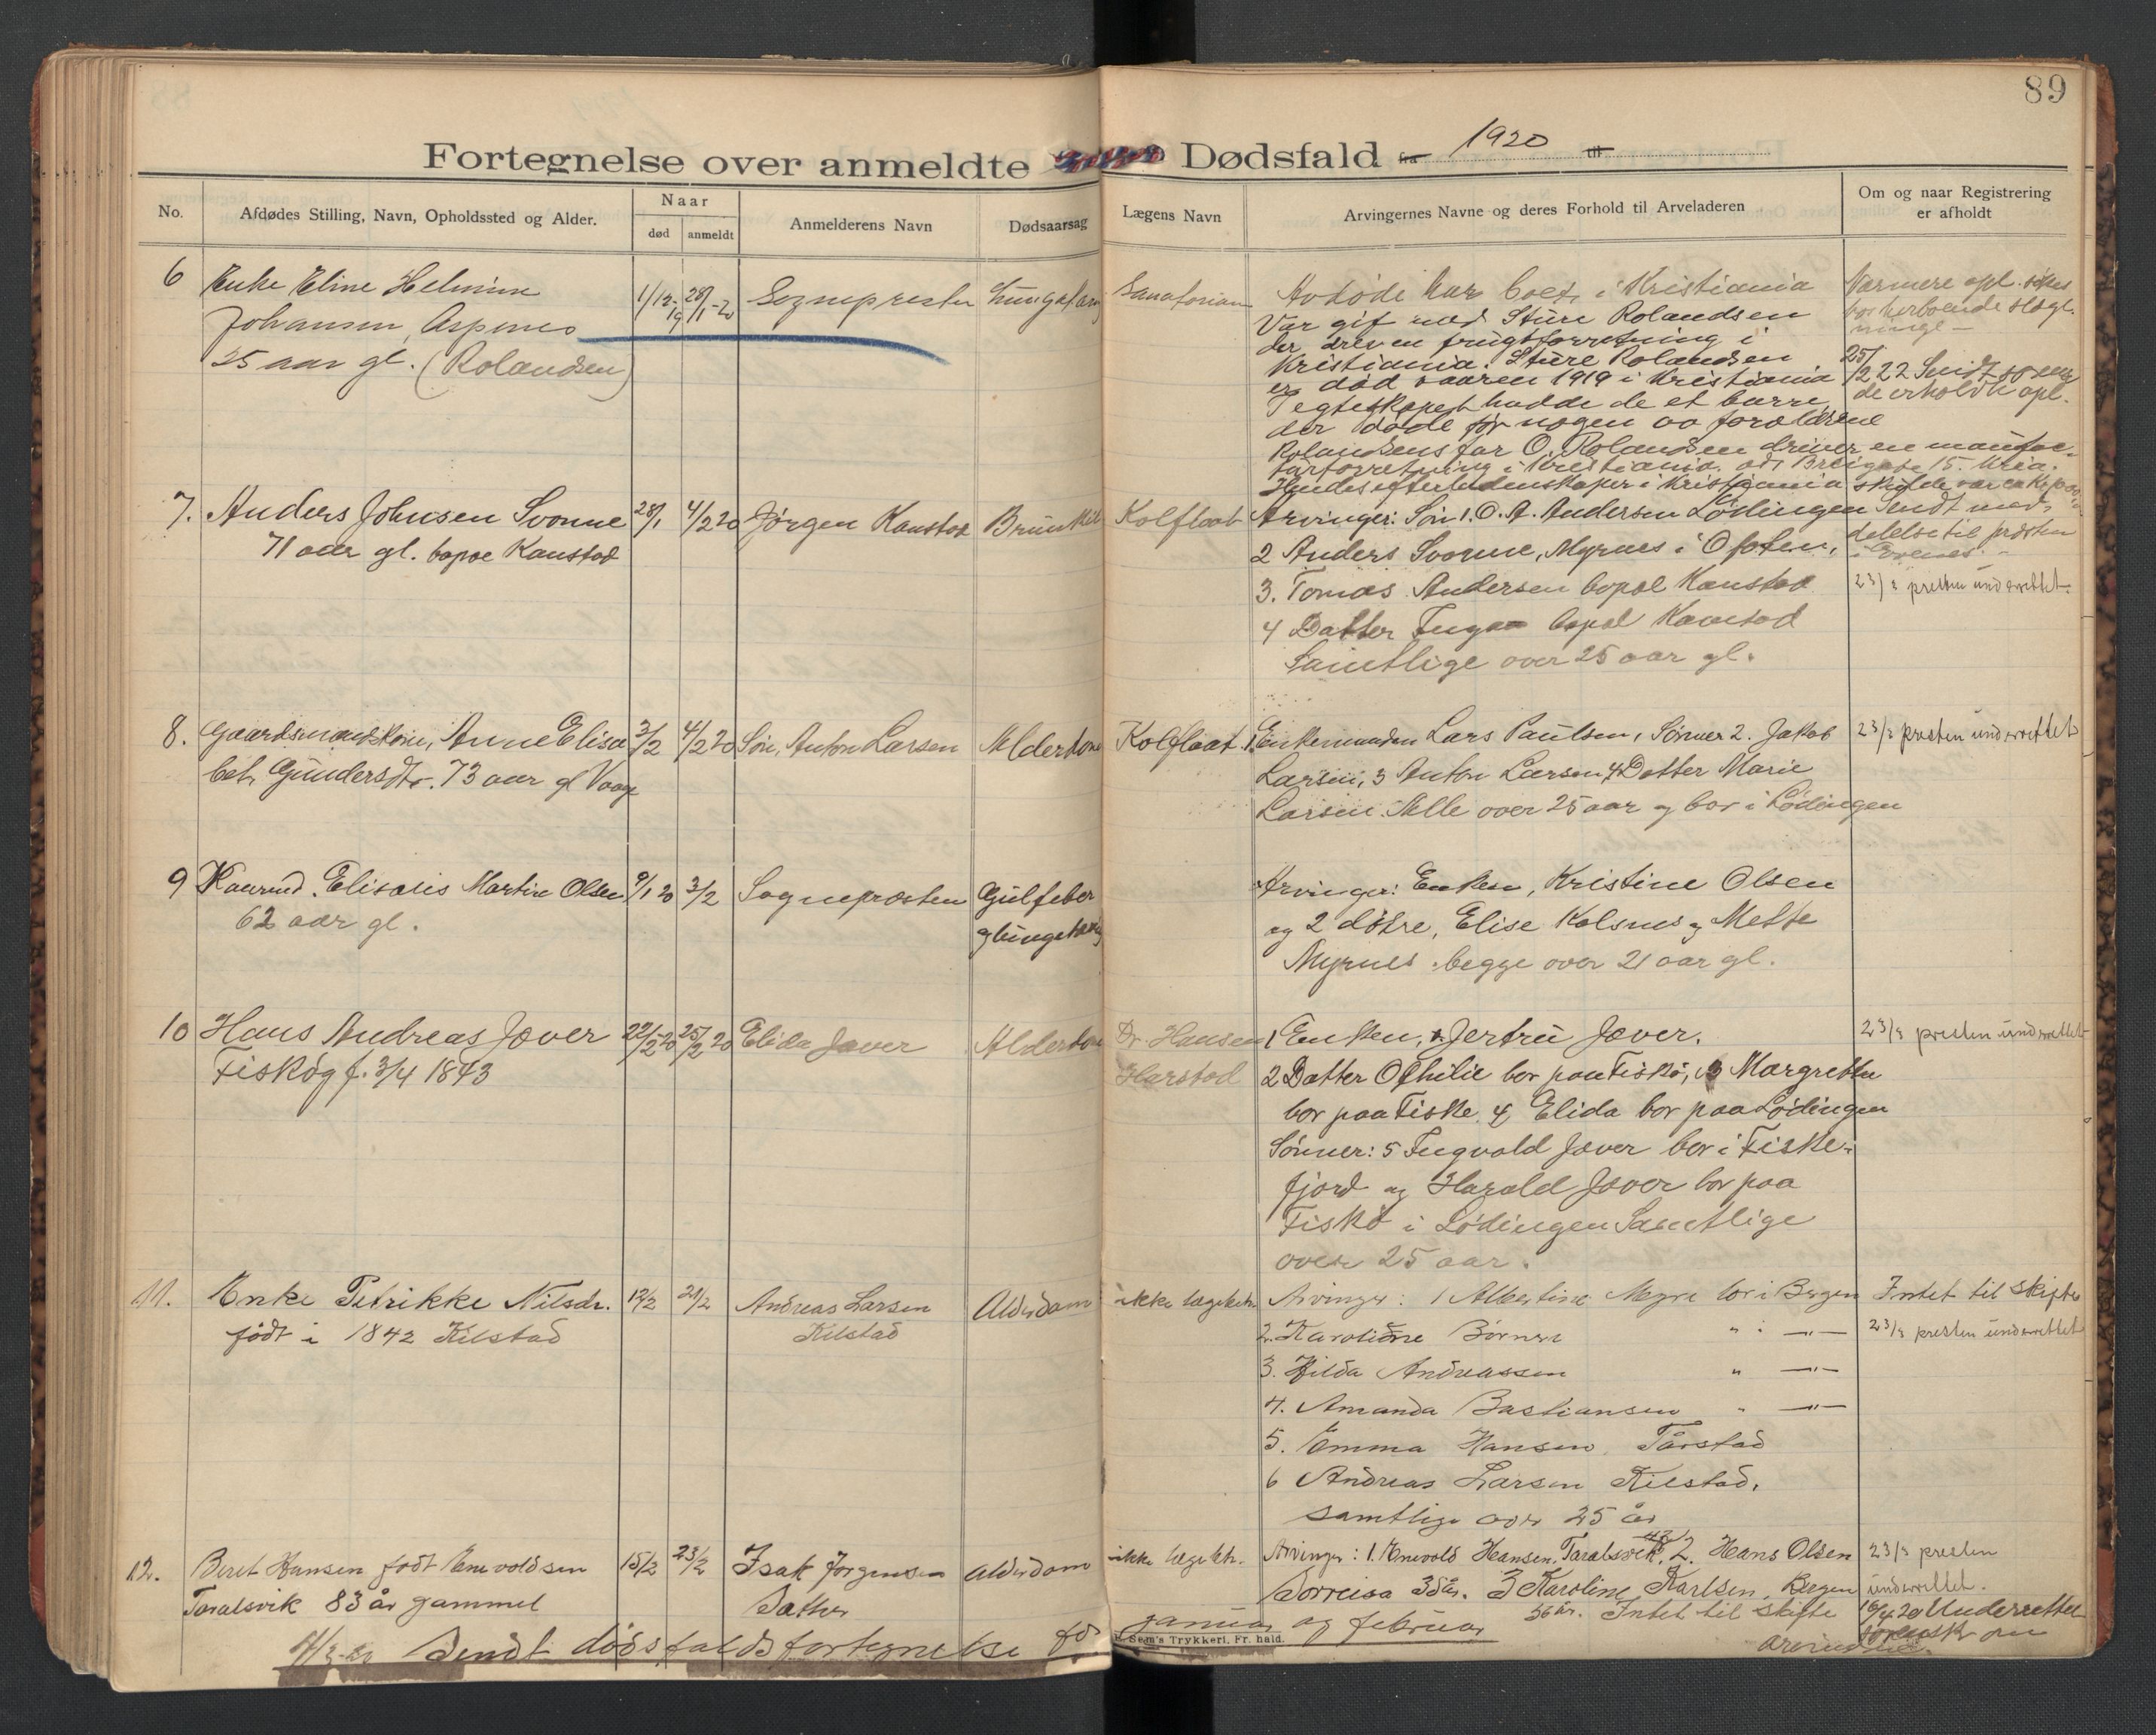 89
Fortegnelse over anmeldte Dødsfald fra 1920 til
No.
Afdødes Stilling, Navn, Opholdssted og Alder.
Naar
død
anmeldt
Anmelderens Navn
Dødsaarsag
Lægens Navn
Arvingernes Navne og deres Forhold til Arveladeren
Om og naar Registrering
er afholdt
6
Enke Eline Helmine
Johansen, Aspenes
25 aar gl. (Rolandsen)
1/12-19
28/1-20
Sognepresten
Sanatorium
Avdøde har boet i Kristiania
Var gift med Sture Rolandsen
der drev en frugtforretning i
Kristiania. Sture Rolandsen
er død vaaren 1919 i Kristiania
I egteskapet hadde de et barn
der døde før nogen av forældrene
Rolandsens far O. Rolandsen driver en manufac-
turforretning i Kristiania. adr Breigate 15. Kria.
Hendes efterladenskaper i Kristiania skulde være
Nærmere opl. søkes
hos herboende slægt-
ninge
25/2 22 Sendt
de erholdte opl.
7.
Anders Johnsen Svonne
71 aar gl. bopæl Kanstad
28/1
4/2 20
Jørgen Kanstad
Kolflaat
Arvinger: Søn 1. O. A. Andersen Lødingen
2 Anders Svonne, Myrnes i Ofoten,
3. Tomas Andersen bopæl Kanstad
4 Datter Inga bopæl Kanstad
Samtlige over 25 aar gl.
Sendt med-
delelse til presten
i Evenes
23/3 presten underrettet
8.
Gaardmandskone, Anne Elisa
bet Gundersdtr. 73 aar gl Vaage
3/2
4/2 20
Søn, Anton Larsen
Alderdom
Kolflaat
1. Enkemanden Lars Paulsen, Sønner 2. Jakob
Larsen, 3 Anton Larsen 4 Datter Marie
Larsen. Alle over 25 aar og bor i Lødingen
23/3 presten underrettet
9
Kaarmd. Elisæus Martin Olsen
62 aar gl.
9/1 20
3/2
Sognepræsten
Gulfeber
Arvinger: Enken, Kristine Olsen
og 2 døtre, Elise Kolsnes og Mette
Myrnes. begge over 21 aar gl.
10
Hans Andreas Jæver
Fiskøg f. 3/4 1843
22/2-20
25/2 20
Elida Jæver
Alderdom
Dr. Hansen
Harstad
1 Enken, Jertru Jæver.
2 Datter Othilie bor paa Fiskø, 3 Margrethe
bor paa Fiskø. 4, Elida bor paa Lødingen
Sønner: 5 Ingvald Jæver bor i Fiske-
fjord og Harald Jæver bor paa
Fiskø i Lødingen Samtlige
over 25 aar.
23/3 presten underrettet
11.
Enke Petrikke Nilsdr.
født i 1842 Kilstad
12/2
21/2
Andreas Larsen
Kilstad
Alderdom
ikke lægebeh.
Arvinger: 1 Albertine Myre bor i Bergen
2. Karoline Børnes " : —"—
3. Hilda Andreassen " —"—
4. Amanda Bastiansen " —"—
5. Emma Hansen, Tårstad
6 Andreas Larsen Kilstad,
samtlige over 25 år
Intet til skifte
23/3 presten underrettet
12.
Beret Hansen født Enevoldsen
Taralsvik 83 år gammel
15/2
23/2
Isak Jørgensen
Alderdom
ikke lægebeh.
Arvinger: 1. Enevold Hansen, Taralsvik, 2. Hans Olsen
Sørreisa 38 år. 3 Karoline Karlsen, Bergen
36 år. Intet til skifte
23/3 presten
underrettet.
16/4 20 Underrettet
Sendt dødsfaldsfortegnelse for januar og februar
Sem's Trykkeri, Fr. hald.